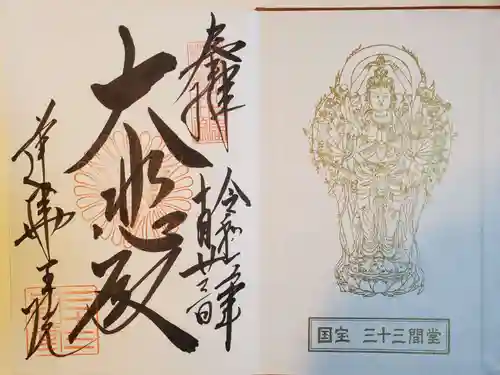 奉拝
令和
十月廿
日
大悲殿
蓮華王院
国宝 三十三間堂